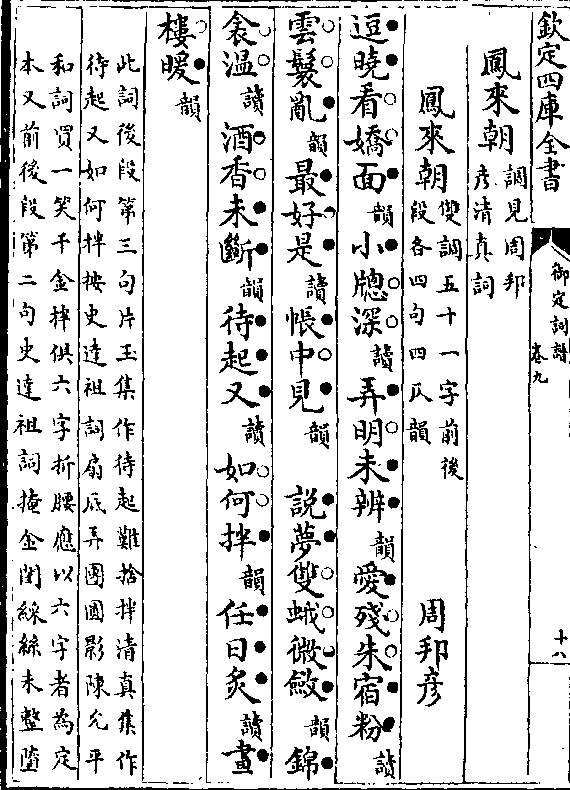 欽定四庫全書
御定詞譜
卷九
十八
鳳來朝
調見周邦
彦清真詞
鳳來朝
雙調五十一字前後
段各四句四仄韻
周邦彦
逗曉看嬌面韻小牕深讀弄明未辨韻愛殘朱宿粉讀
雲鬟亂韻最好是讀帳中見韻 說夢雙蛾微斂韻錦
衾温讀酒香未斷韻待起又讀如何拌韻任日炙讀畫
樓暖韻
此詞後段第三句片玉集作待起難捨拌清真集作
待起又如何拌按史達祖詞扇底弄團圓影陳允平
和詞買一笑千金拌俱六字折腰應以六字者為定
本又前後段第二句史達祖詞掩金閉綵絲未整墮